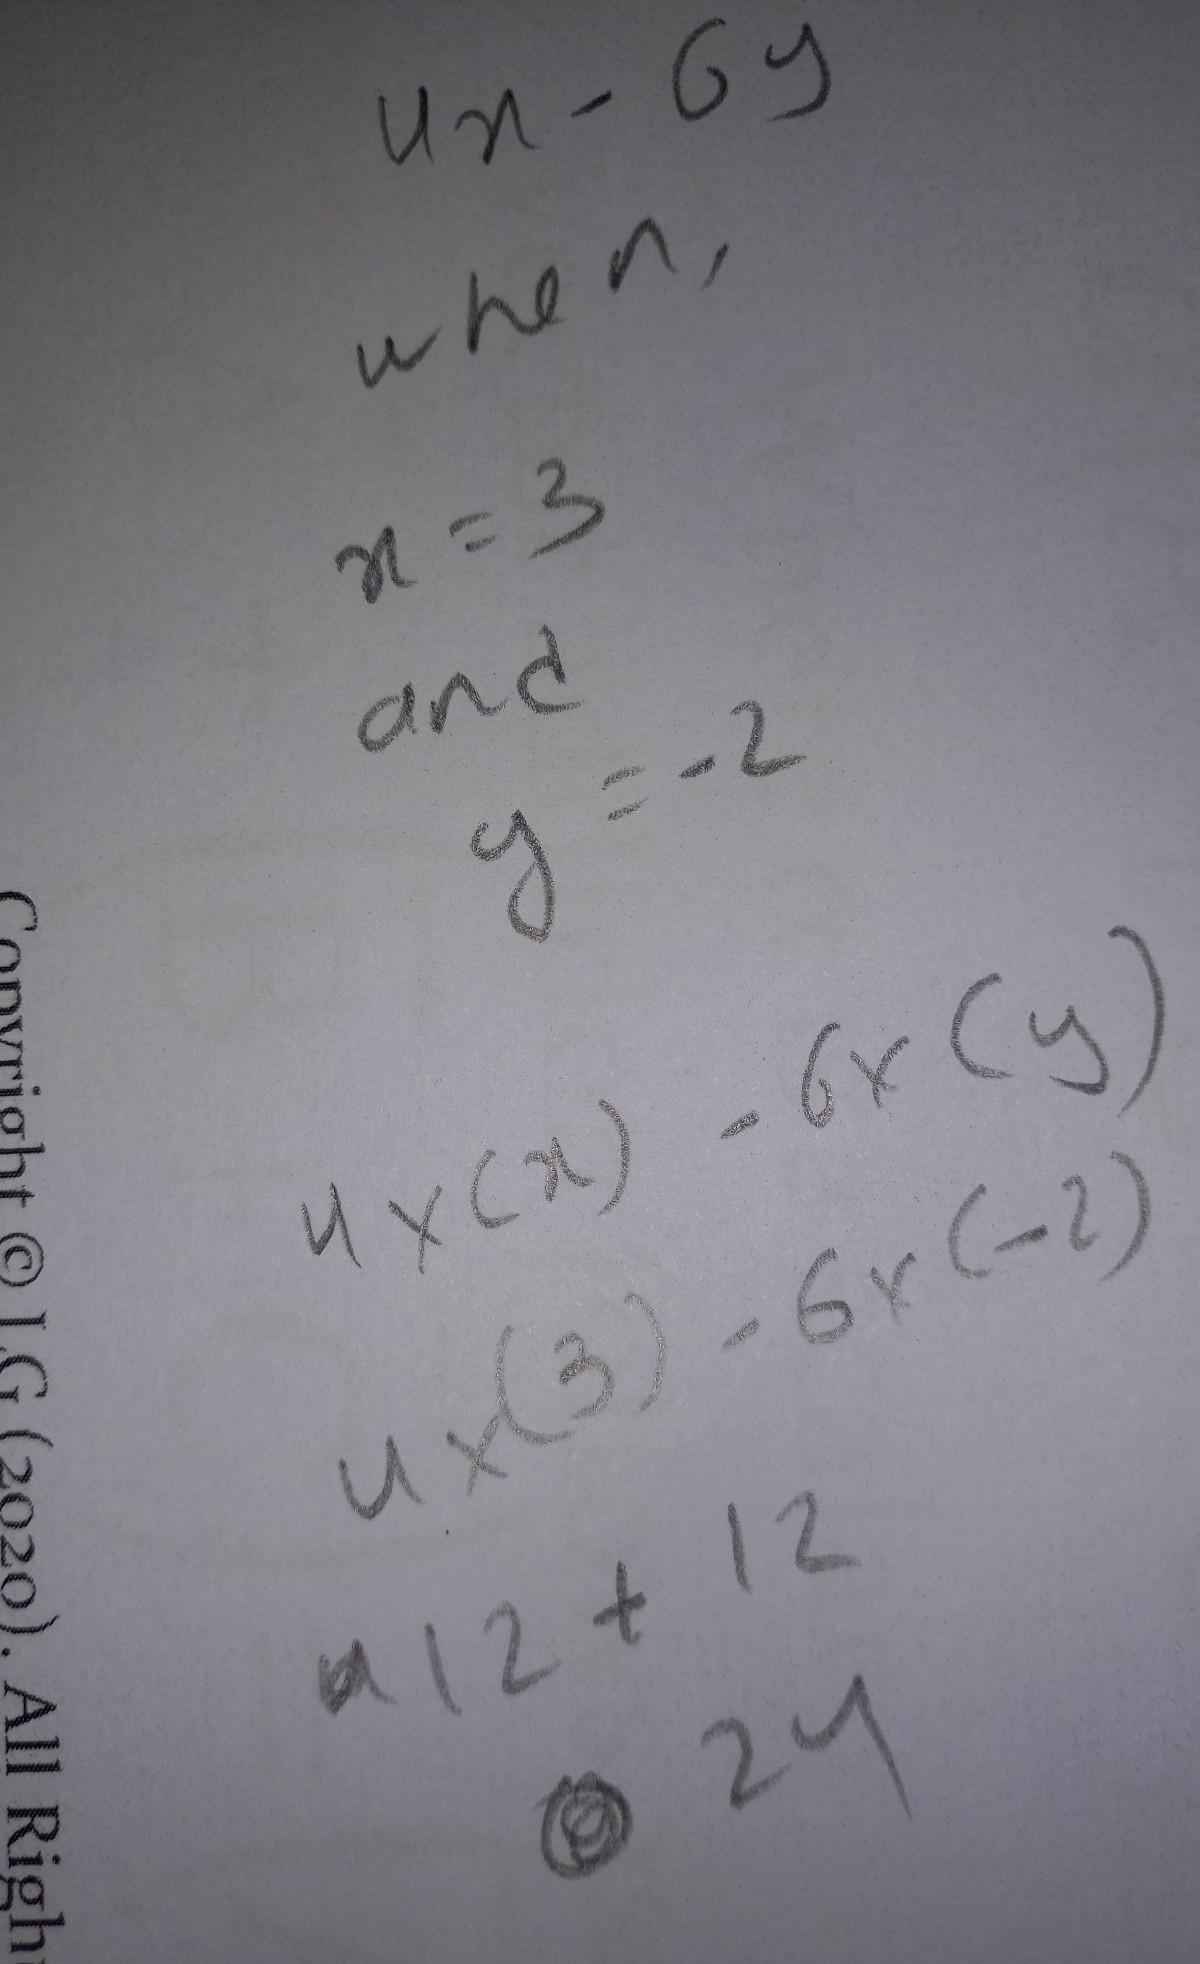 4x - 6y
when,
x = 3
and
y = -2
4x(x) - 6x(y)
4x(3) - 6x(-2)
12 + 12
24
Copyright © I.G (2020). All Righ